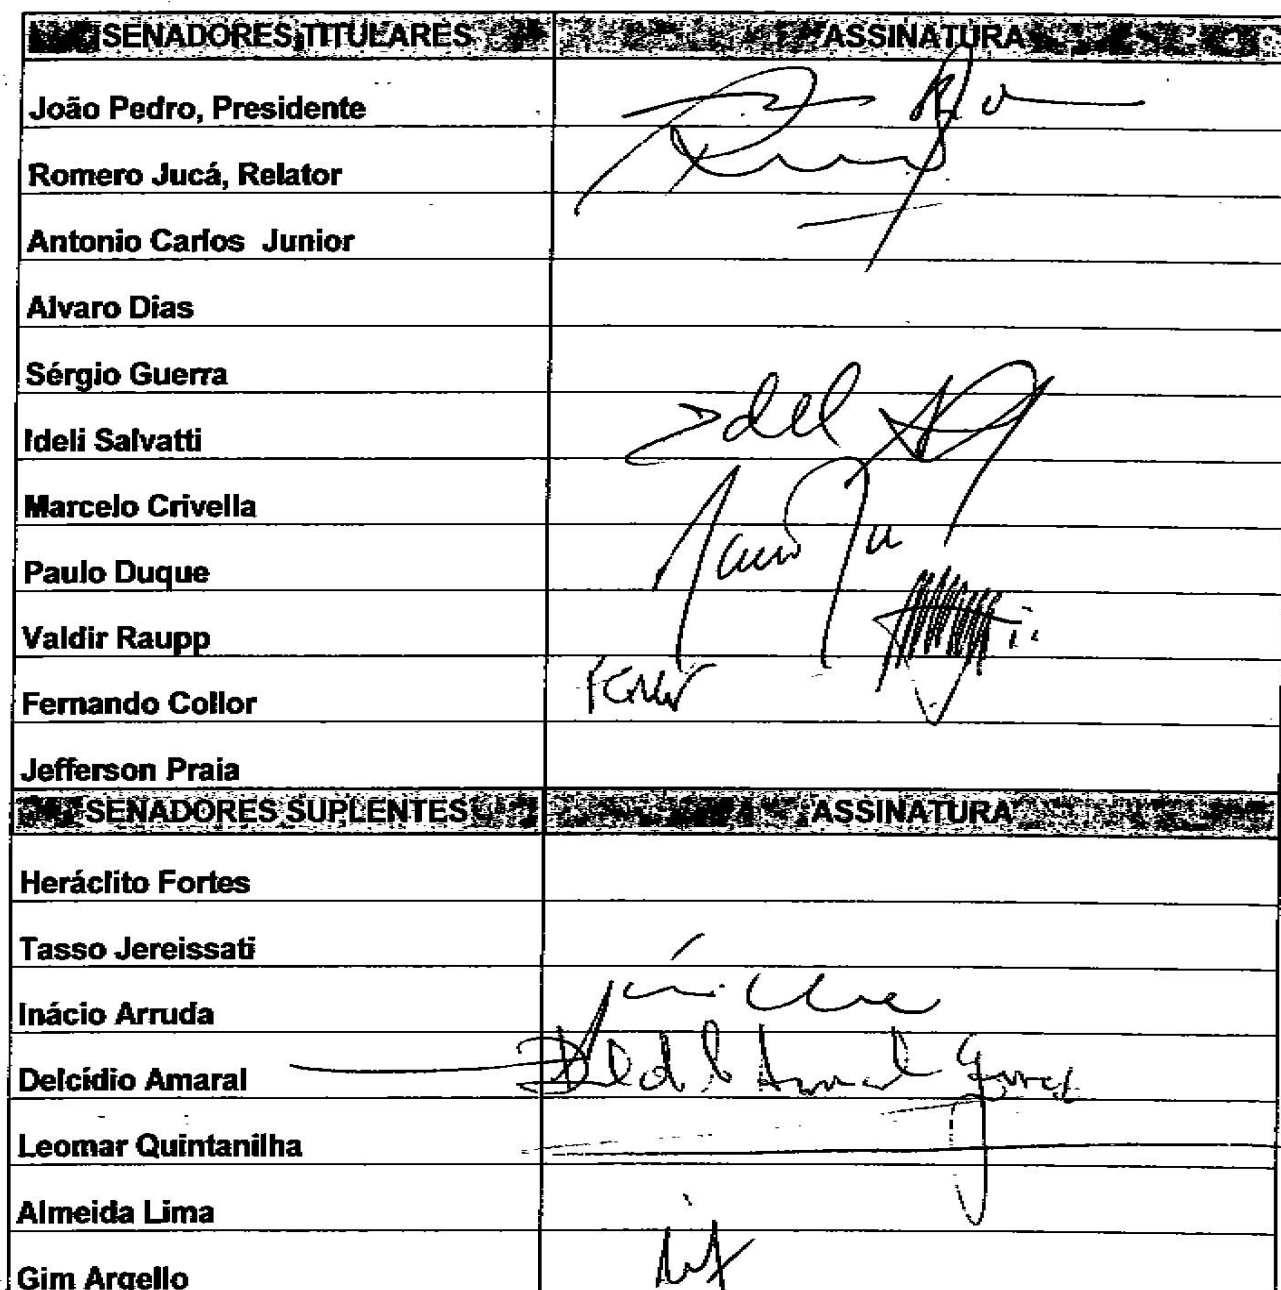 SENADORES TITULARES ASSINATURA
João Pedro, Presidente
Romero Jucá, Relator
Antonio Carlos Junior
Alvaro Dias
Sérgio Guerra
Ideli Salvatti
Marcelo Crivella
Paulo Duque
Valdir Raupp
Fernando Collor
Jefferson Praia
SENADORES SUPLENTES ASSINATURA
Heráclito Fortes
Tasso Jereissati
Inácio Arruda
Delcídio Amaral
Leomar Quintanilha
Almeida Lima
Gim Argello